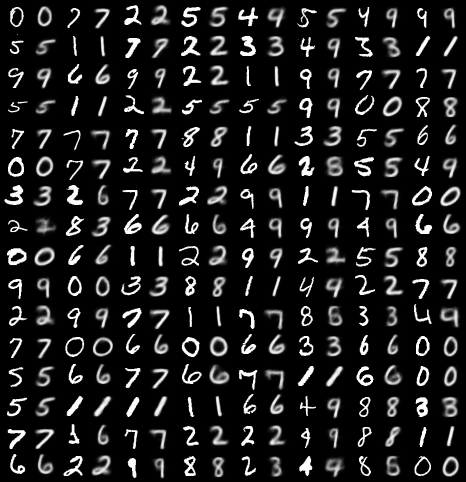 0 0 7 7 2 2 5 5 4 9 5 5 4 9 9 9
5 5 1 1 7 9 2 2 3 3 4 9 3 3 1 1
9 9 6 6 9 9 2 2 1 1 9 9 7 7 7 7
5 5 1 1 2 2 5 5 5 5 9 9 0 0 8 8
7 7 7 7 7 7 8 8 1 1 3 3 5 5 6 6
0 0 7 7 2 2 4 9 6 6 2 8 5 5 4 9
3 3 2 6 7 7 2 2 9 9 1 1 7 7 0 0
2 2 8 3 6 6 6 6 4 9 9 9 4 9 6 6
0 0 6 6 1 1 2 2 9 9 2 2 5 5 8 8
9 9 0 0 3 3 8 8 1 1 4 9 2 2 7 7
2 2 9 9 7 7 1 1 7 7 8 5 3 3 4 9
7 7 0 0 6 6 0 0 6 6 3 3 6 6 0 0
5 5 6 6 7 7 6 6 7 7 1 1 6 6 0 0
5 5 1 1 1 1 1 1 6 6 4 9 8 8 3 3
7 7 1 6 7 7 2 2 2 2 9 9 8 8 1 1
6 6 2 2 9 9 8 8 2 3 4 4 8 5 0 0